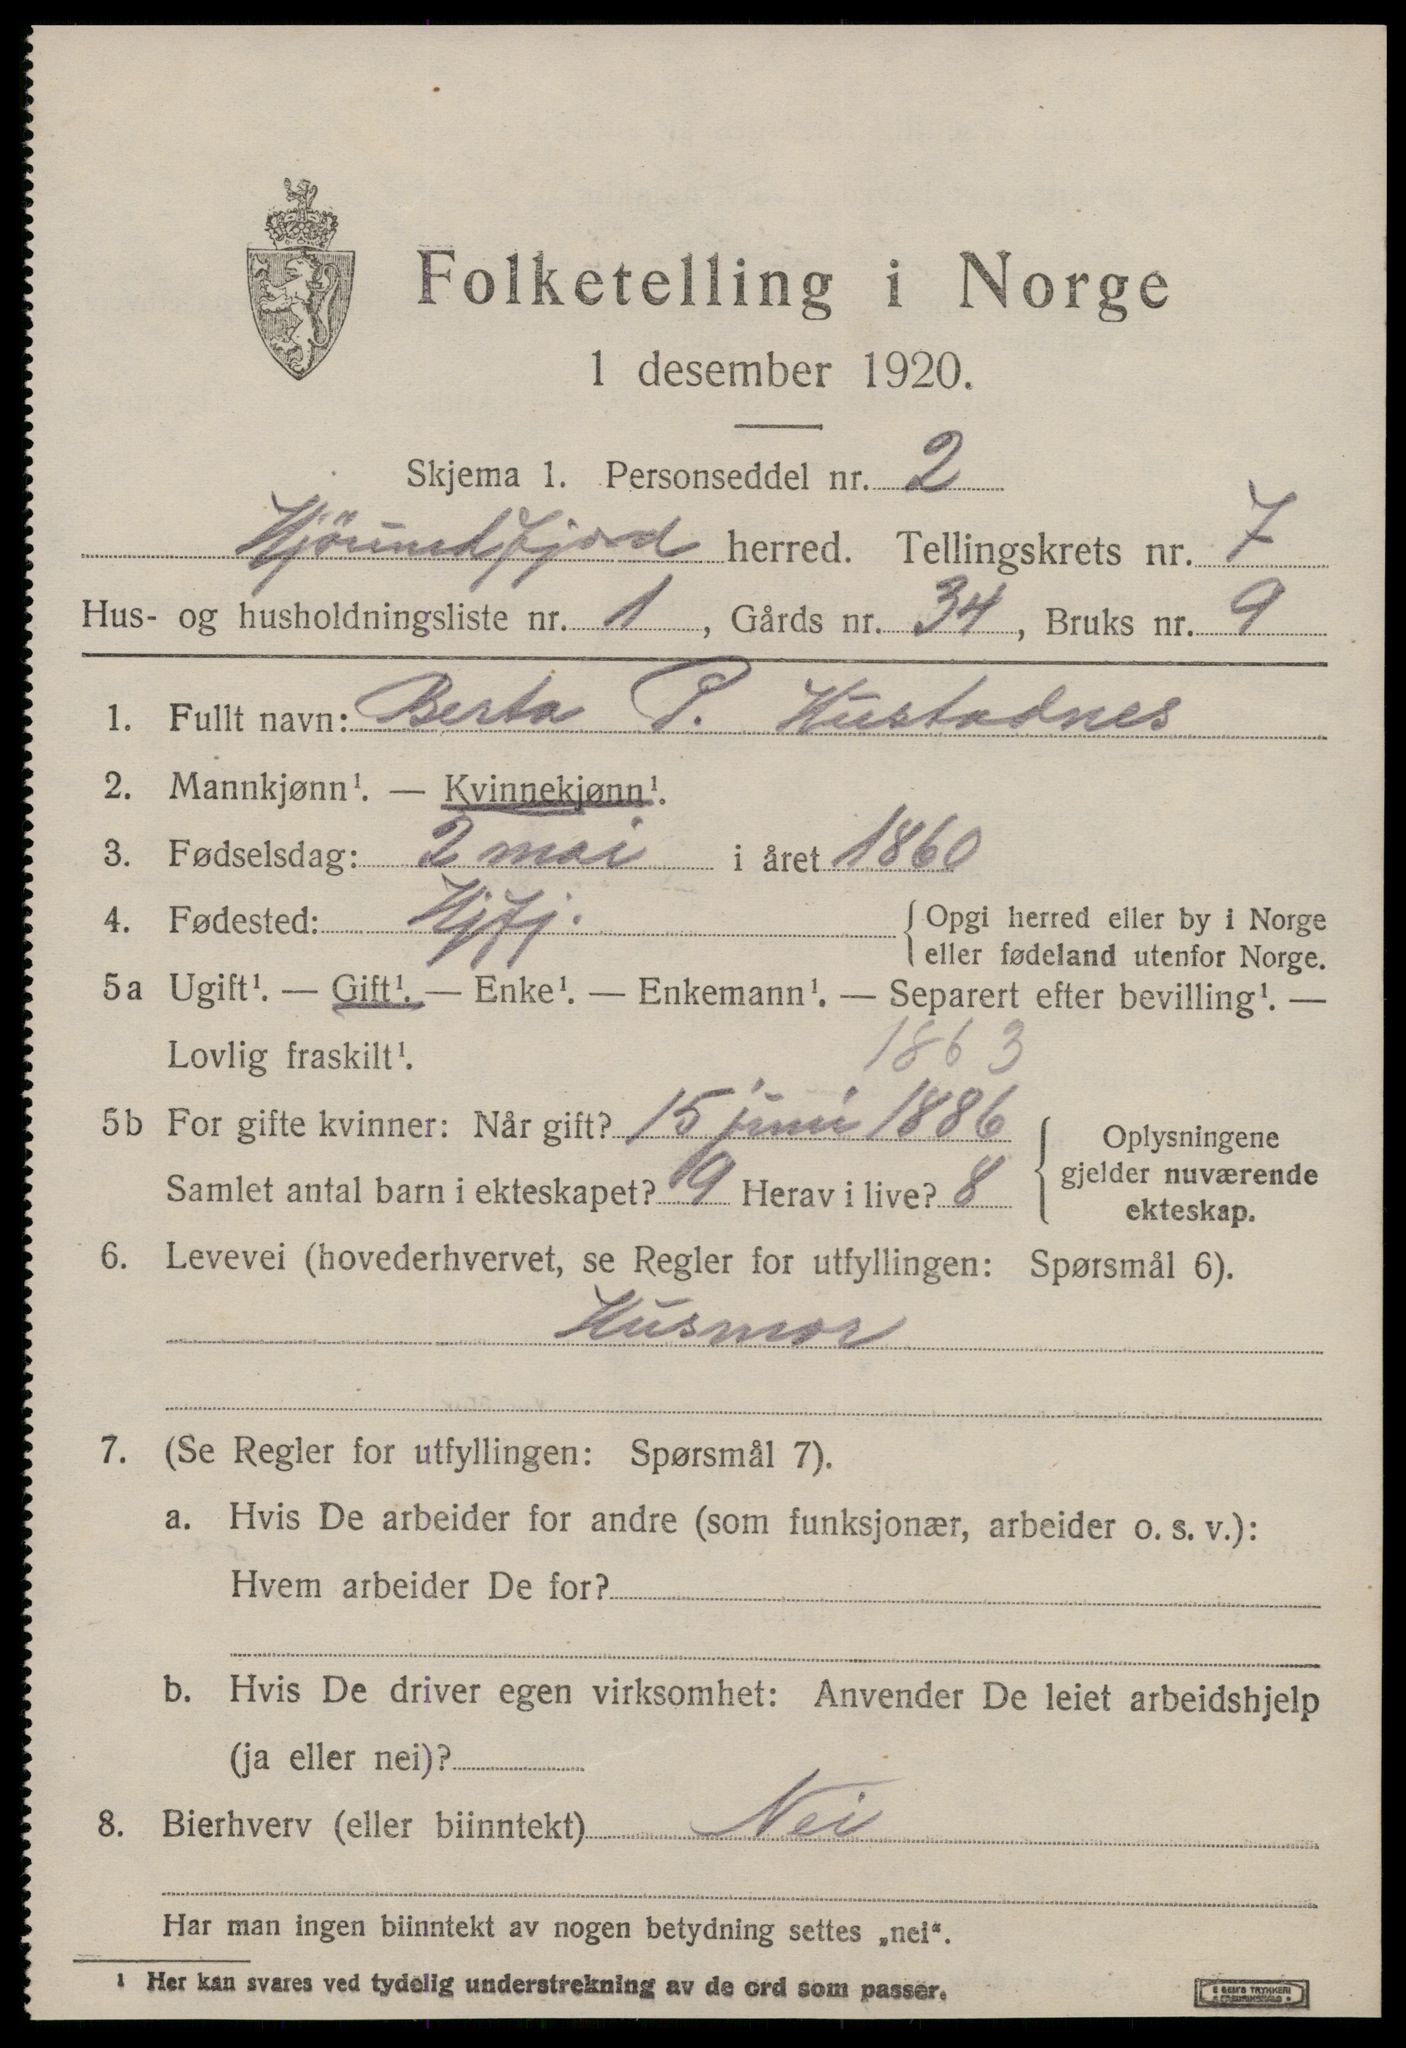 Folketelling i Norge
1 desember 1920.
Skjema 1. Personseddel nr. 2
Hjörundfjord herred. Tellingskrets nr. 7
Hus- og husholdningsliste nr. 1, Gårds nr. 34, Bruks nr. 9
1. Fullt navn: Berta P. Hustadnes
2. Mannkjønn¹. — Kvinnekjønn¹.
3. Fødselsdag: 2 mai i året 1860
4. Fødested: Hjfj. { Opgi herred eller by i Norge
eller fødeland utenfor Norge.
5a Ugift¹. — Gift¹. — Enke¹. — Enkemann¹. — Separert efter bevilling¹. —
Lovlig fraskilt¹.
1863
5b For gifte kvinner: Når gift? 15 juni 1886
Samlet antal barn i ekteskapet? 9 Herav i live? 8
Oplysningene
gjelder nuværende
ekteskap.
6. Levevei (hovederhvervet, se Regler for utfyllingen: Spørsmål 6).
Husmor
7. (Se Regler for utfyllingen: Spørsmål 7).
a. Hvis De arbeider for andre (som funksjonær, arbeider o. s. v.):
Hvem arbeider De for?
b. Hvis De driver egen virksomhet: Anvender De leiet arbeidshjelp
(ja eller nei)?
8. Bierhverv (eller biinntekt) Nei
Har man ingen biinntekt av nogen betydning settes „nei“.
¹ Her kan svares ved tydelig understrekning av de ord som passer.